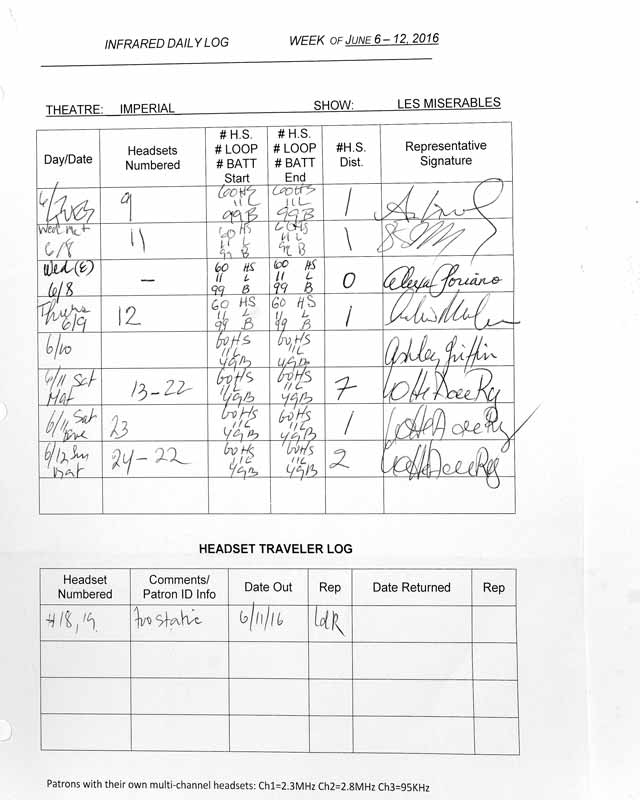 INFRARED DAILY LOG WEEK OF JUNE 6 – 12, 2016
THEATRE: IMPERIAL SHOW: LES MISERABLES
Day/Date Headsets Numbered # H.S. # LOOP # BATT Start # H.S. # LOOP # BATT End #H.S. Dist. Representative Signature
6/7 9 60HS 11L 99B 60HS 11L 99B 1
Wed mat 6/8 11 60 HS 11 L 99 B 60 HS 11 L 99 B 1
Wed (E) 6/8 – 60 HS 11 L 99 B 60 HS 11 L 99 B 0 Alexa Soriano
Thurs 6/9 12 60 HS 11 L 99 B 60 HS 11 L 99 B 1
6/10 60HS 11L 49B 60HS 11L 49B Ashley Griffin
6/11 Sat Mat 13-22 60HS 11L 49B 60HS 11L 49B 7
6/11 Sat Eve 23 60HS 11L 49B 60HS 11L 49B 1
6/12 Sun Mat 24-22 60HS 11L 49B 60HS 11L 49B 2
HEADSET TRAVELER LOG
Headset Numbered Comments/ Patron ID Info Date Out Rep Date Returned Rep
#18, 19 static 6/11/16 LdR
Patrons with their own multi-channel headsets: Ch1=2.3MHz Ch2=2.8MHz Ch3=95KHz